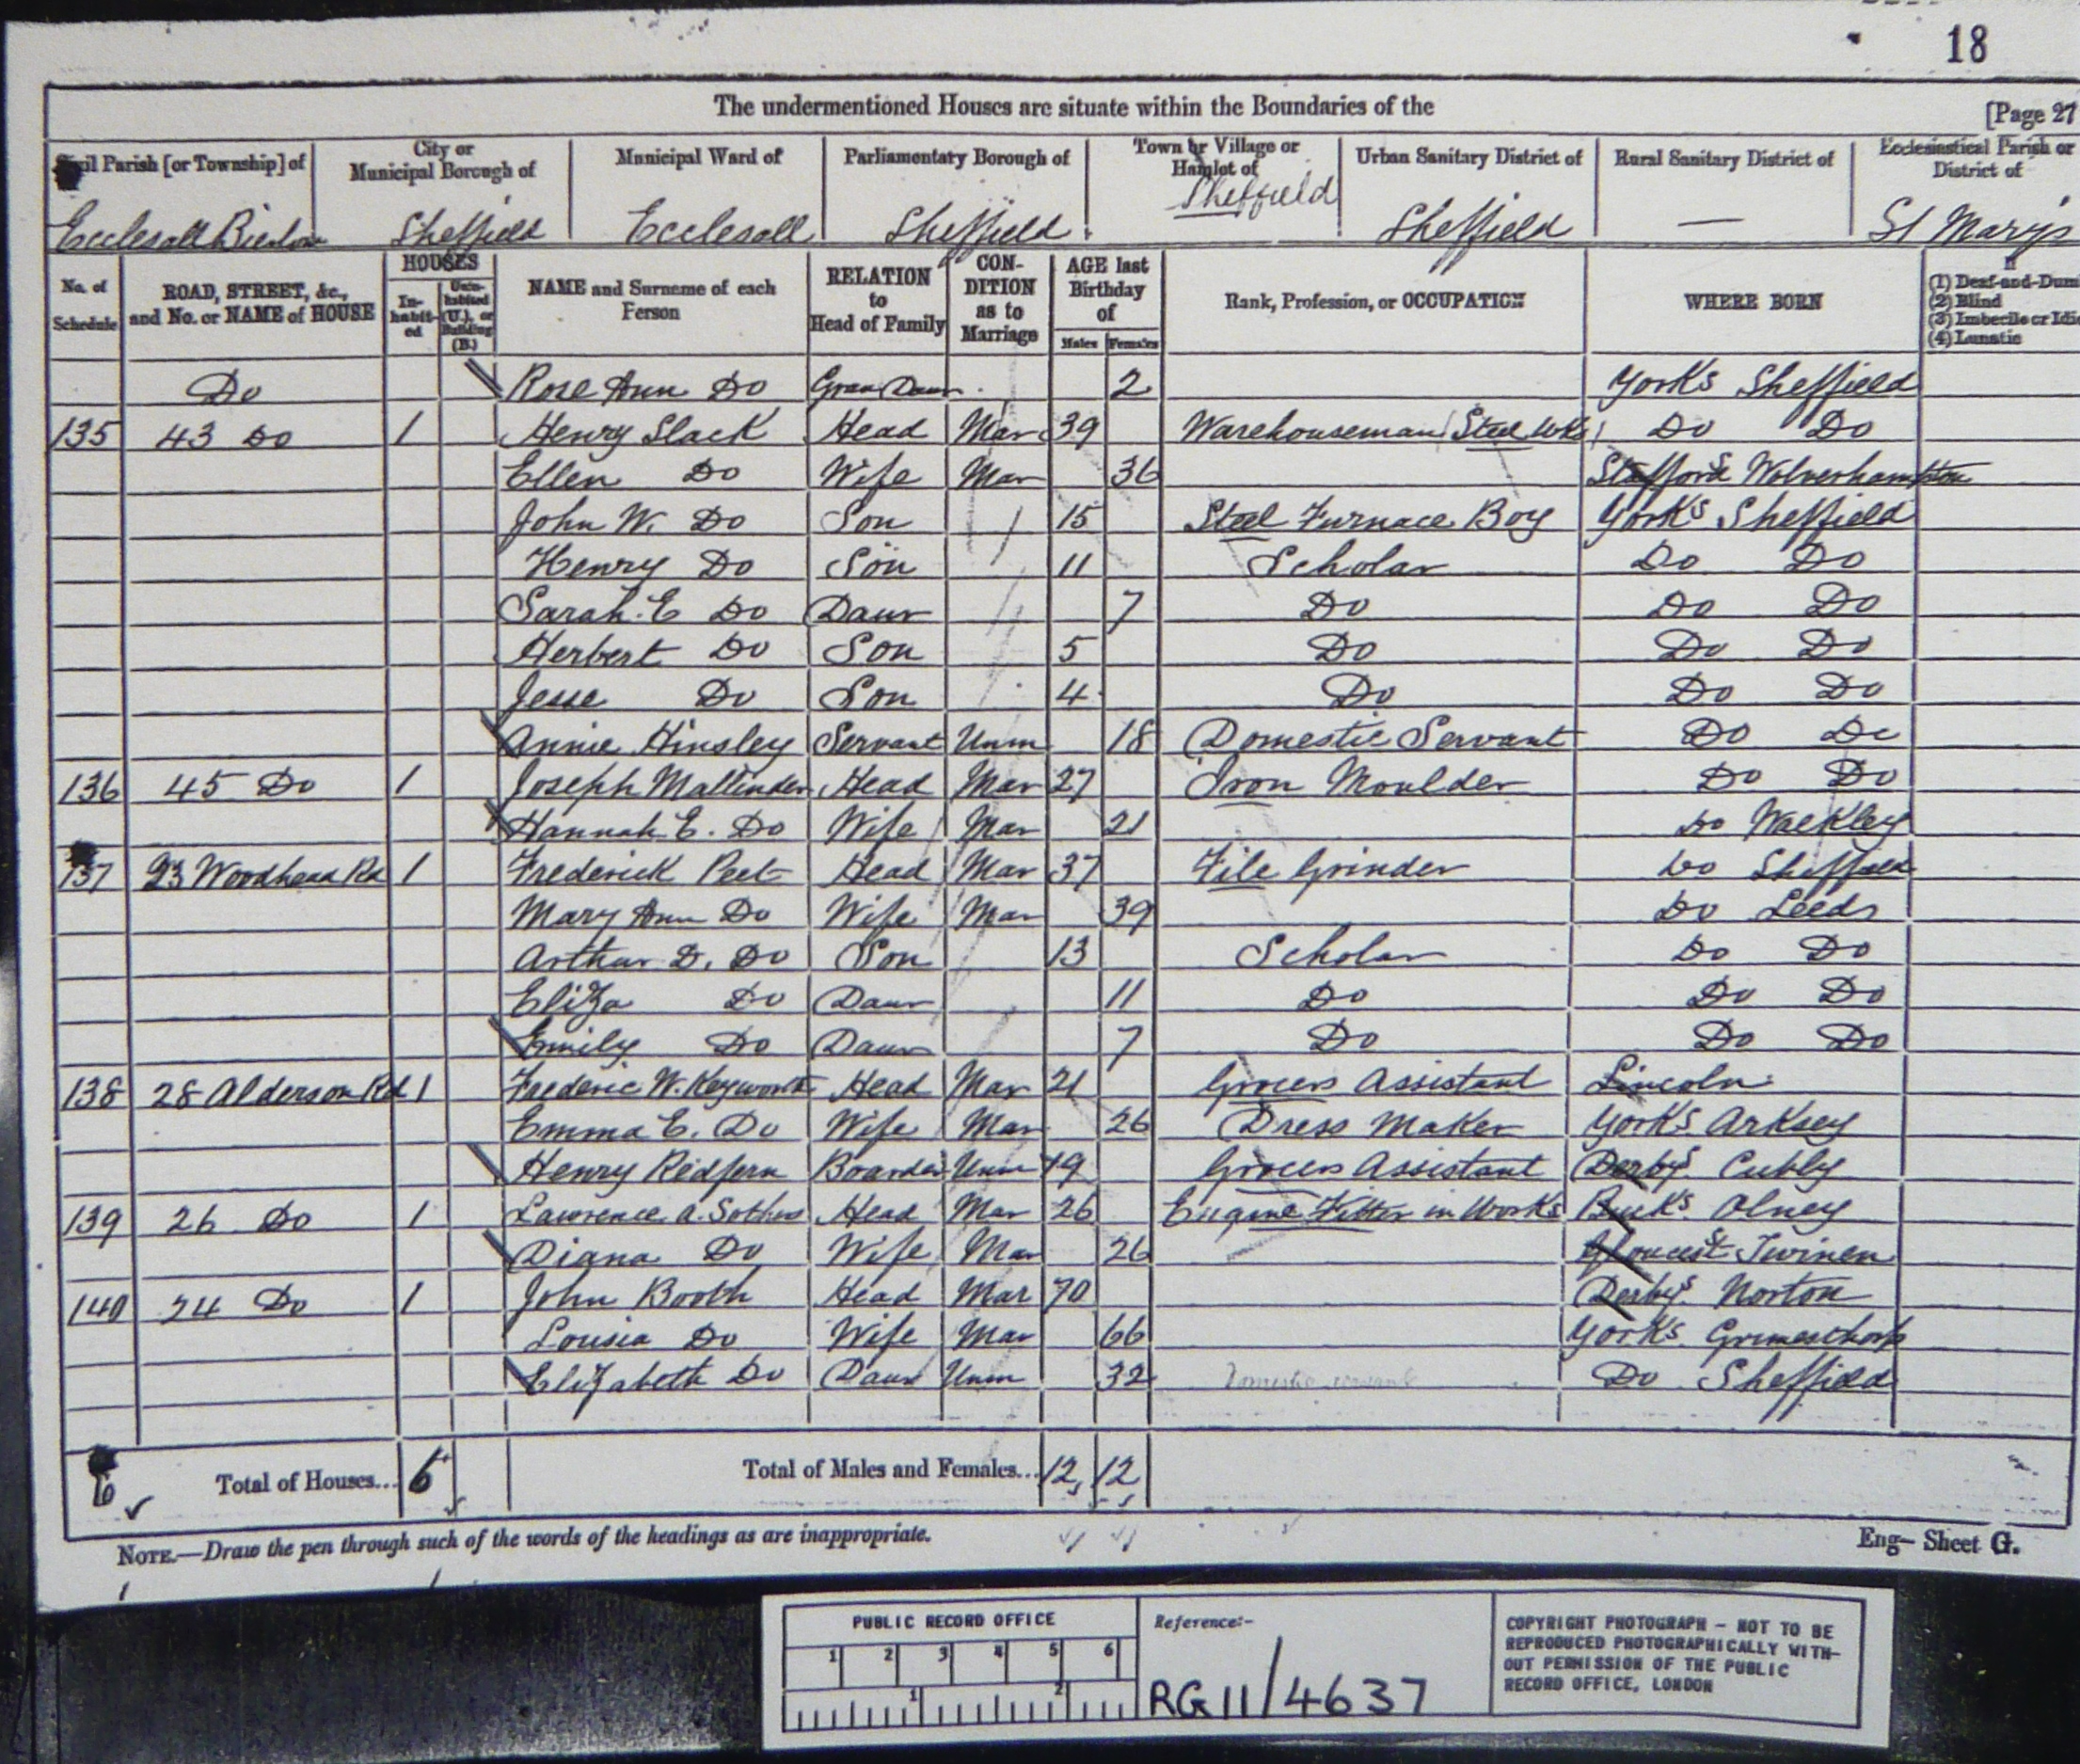 18
The undermentioned Houses are situate within the Boundaries of the [Page 27
Civil Parish [or Township] of City or Municipal Borough of Municipal Ward of Parliamentary Borough of Town or Village or Hamlet of Urban Sanitary District of Rural Sanitary District of Ecclesiastical Parish or District of
Ecclesall Bierlow Sheffield Ecclesall Sheffield Sheffield Sheffield — St Marys
No. of Schedule ROAD, STREET, &c., and No. or NAME of HOUSE HOUSES In-habit-ed Unin-habited (U.), or Building (B.) NAME and Surname of each Person RELATION to Head of Family CON-DITION as to Marriage AGE last Birthday of Males Females Rank, Profession, or OCCUPATION WHERE BORN If (1) Deaf-and-Dumb (2) Blind (3) Imbecile or Idiot (4) Lunatic
Do Rose Ann Do Gran Daur 2 Yorks Sheffield
135 43 Do 1 Henry Slack Head Mar 39 Warehouseman (Steel Wks) Do Do
Ellen Do Wife Mar 36 Staffords Wolverhampton
John W. Do Son 15 Steel Furnace Boy Yorks Sheffield
Henry Do Son 11 Scholar Do Do
Sarah E Do Daur 7 Do Do Do
Herbert Do Son 5 Do Do Do
Jesse Do Son 4 Do Do Do
Annie Hinsley Servant Unm 18 Domestic Servant Do Do
136 45 Do 1 Joseph Mallinder Head Mar 27 Iron Moulder Do Do
Hannah E. Do Wife Mar 21 Do Walkley
137 23 Woodhead Rd 1 Frederick Peet Head Mar 37 File Grinder Do Sheffield
Mary Ann Do Wife Mar 39 Do Leeds
Arthur D. Do Son 13 Scholar Do Do
Eliza Do Daur 11 Do Do Do
Emily Do Daur 7 Do Do Do
138 28 Alderson Rd 1 Frederic W. Keyworth Head Mar 21 Grocers Assistant Lincoln
Emma E. Do Wife Mar 26 Dress Maker Yorks Arksey
Henry Redfern Boarder Unm 19 Grocers Assistant Derbys Cubly
139 26 Do 1 Lawrence A. Head Mar 26 Engine Fitter in Works Bucks Olney
Diana Do Wife Mar 26 Gloucest
140 24 Do 1 John Booth Head Mar 70 Derbys Norton
Lousia Do Wife Mar 66 Yorks Grimesthorp
Elizabeth Do Daur Unm 32 Domestic servant Do Sheffield
6 Total of Houses... 6 Total of Males and Females... 12 12
NOTE.—Draw the pen through such of the words of the headings as are inappropriate. Eng— Sheet G.
PUBLIC RECORD OFFICE
1 2 3 4 5 6
1 2
Reference:-
RG 11/4637
COPYRIGHT PHOTOGRAPH - NOT TO BE
REPRODUCED PHOTOGRAPHICALLY WITH-
OUT PERMISSION OF THE PUBLIC
RECORD OFFICE, LONDON